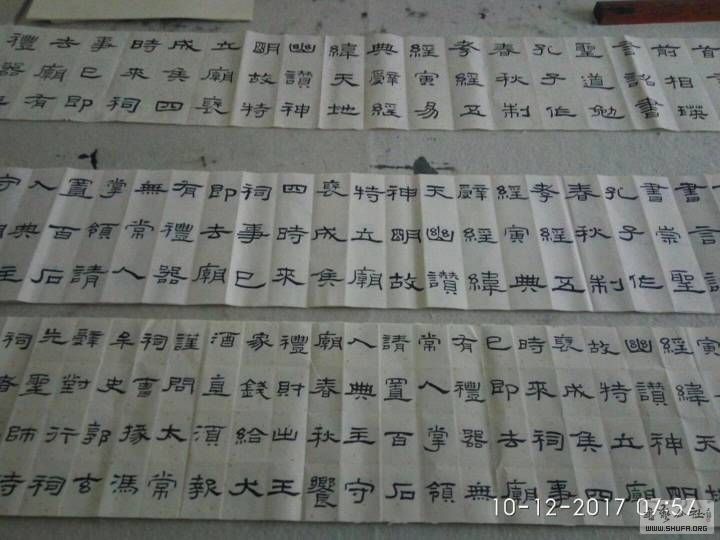 首
前相瑛
言詔書
聖道勉
孔子作
春秋制
孝經五
經寅易
典辟經
緯天地
幽讚神
明故特
立廟褒
成侯四
時來祠
事已即
去廟有
禮器
書言
書崇聖
孔子作
春秋制
孝經五
經寅典
辟經緯
天幽讚
神明故
特立廟
褒成侯
四時來
祠事已
即去廟
有禮器
無常人
掌領請
置百石
入典主
守
寅
經緯天
幽讚神明
故特立廟
褒成侯四
時來祠事
已即去廟
有禮器無
常人掌領
請置百石
入典主守
廟春秋饗
禮財出王
家錢給犬
酒直須報
謹問大常
祠曹掾馮
牟史郭玄
辟對行祠
先聖師
祠
10-12-2017 07:57
WWW.SHUFA.ORG